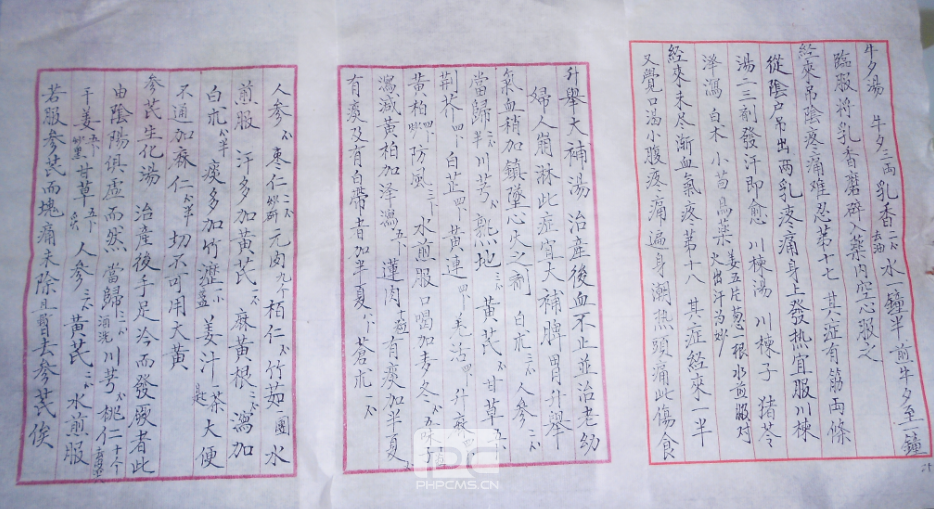 牛夕湯 牛夕三両 乳香 去油 水一鐘半 煎牛夕至一鐘
臨服將乳香磨碎入藥内空心服之
經來吊陰疼痛難忍苐十七 其症有筋両條
從陰户吊出両乳疼痛身上發热宜服川楝
湯二三剂發汗即愈 川楝湯 川楝子 猪苓
澤瀉 白术 小茴 烏藥 姜五片葱一根水煎服对火出汗為妙
經來未尽漸血氣疼苐十八 其症經來一半
又覺口渴小腹疼痛遍身潮热頭痛此傷食
升舉大補湯 治產後血不止並治老幼
婦人崩淋此症宜大補脾胃升舉
氣血稍加鎮墜心火之劑 白朮 人參
當歸 川芎 熟地 黄芪 甘草
荆芥 四卜 白芷 四卜 黄連 四卜 升麻 四卜
黄柏 四卜 防風 水煎服口喝加麥冬 五味子
瀉減黄柏加泽瀉 五卜 蓮肉 有痰加半夏
有痰及有白帶者加半夏 八卜 蒼朮
人参 枣仁 元肉 九个 栢仁 竹茹 一團 水
煎服 汗多加黄芪 麻黄根 瀉加
白朮 痰多加竹瀝 姜汁一茶匙 大便
不通加麻仁 切不可用大黄
參芪生化湯 治產後手足冷而發厥者此
由陰陽俱虚而然 當歸 酒洗 川芎 桃仁 十个
干姜 甘草 五卜 人參 黄芪 水煎服
若服参芪而塊痛未除且暫去參芪俟
PHPCMS.CN